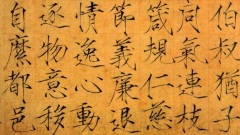 伯叔猶子
同氣連枝
箴規仁慈
節義廉退
情逸心動
逐物意移
自縻都邑